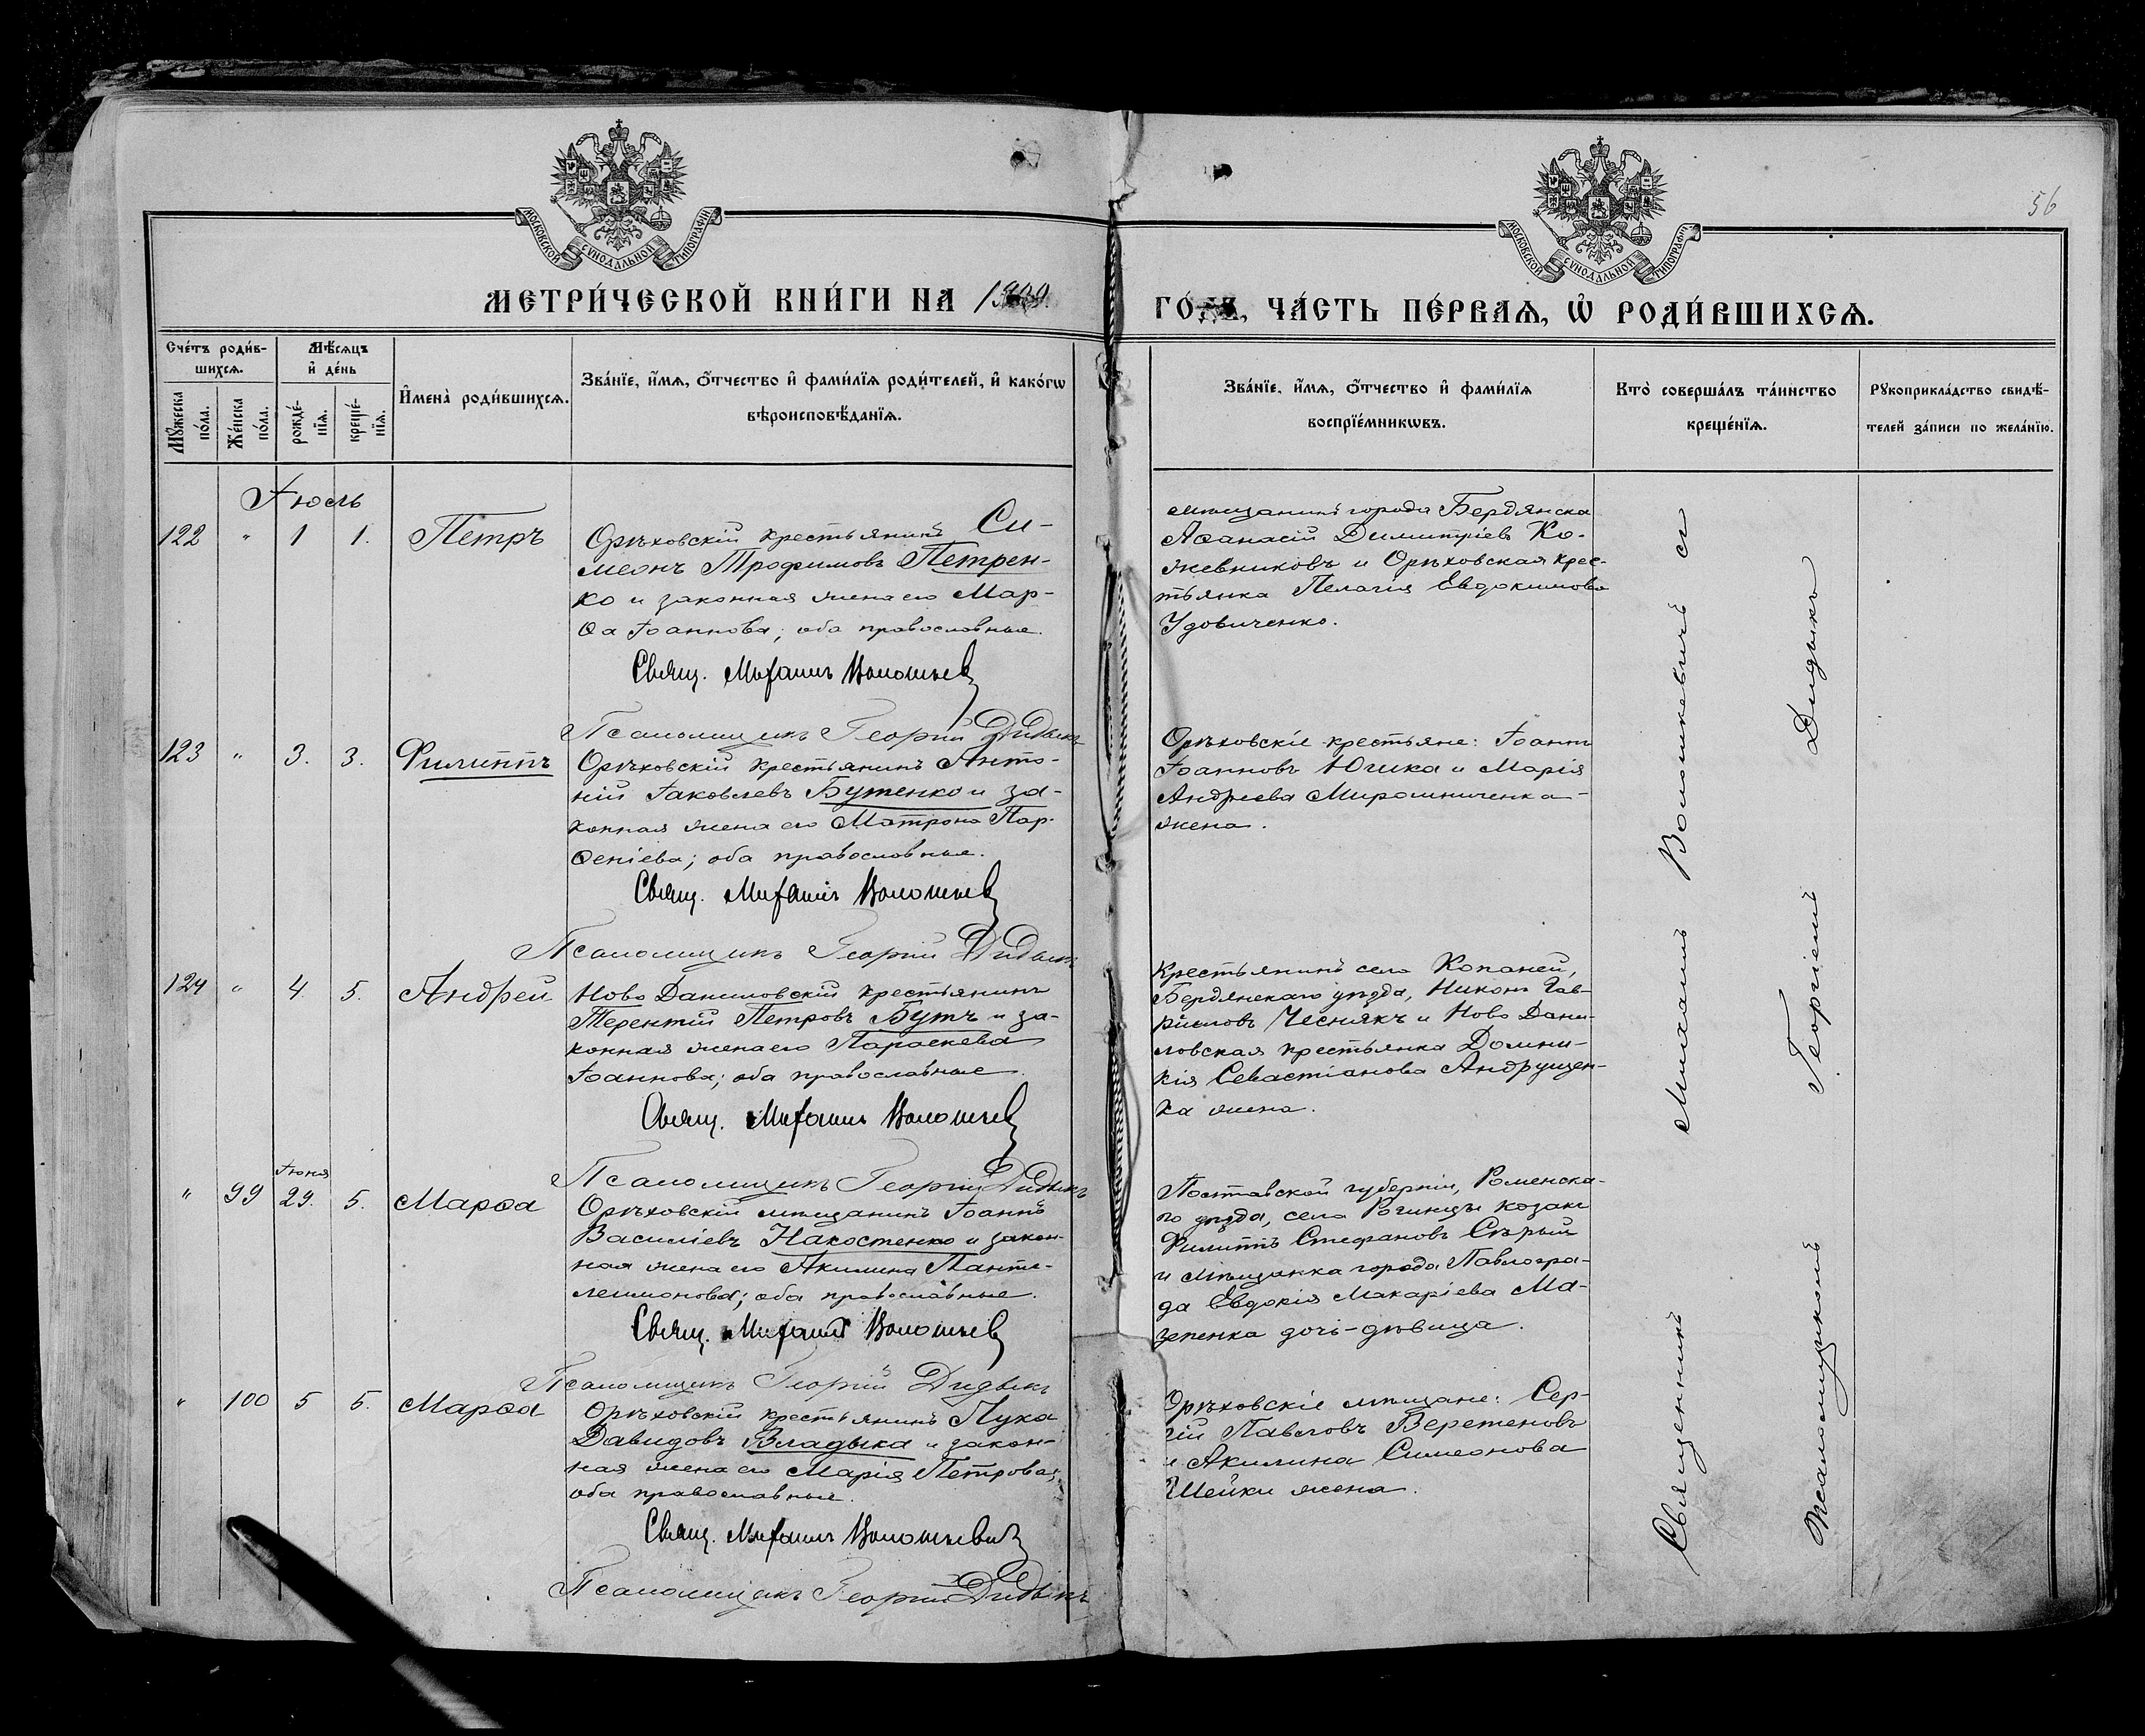 56
МОСКОВСКОЙ СѴНОДАЛЬНОЙ ТИПОГРАФІИ
МОСКОВСКОЙ СѴНОДАЛЬНОЙ ТИПОГРАФІИ
МЕТРИ́ЧЕСКОЙ КНИ́ГИ НА
ЧА́СТЬ ПЕ́РВАѦ, Ѡ҆ РОДИ́ВШИХСѦ.
Сче́тъ роди́в-
шихсѧ.
Мꙋ́жеска по́ла.
Же́нска по́ла.
Мѣ́сѧцъ
и҆ де́нь
рожде́-
нїѧ.
креще́-
нїѧ.
И҆мена̀ роди́вшихсѧ.
Зва́нїе, и҆́мѧ, ѻ҆́тчество и҆ фами́лїѧ роди́телей, и҆ како́гѡ
вѣроисповѣ́данїѧ.
Зва́нїе, и҆́мѧ, ѻ҆́тчество и҆ фами́лїѧ
воспрїе́мникѡвъ.
Кто̀ соверша́лъ та́инство
креще́нїѧ.
Рꙋкоприкла́дство свидѣ́-
телей за́писи по жела́нїю.
Іюль
122 " 1 1. Петръ
Орѣховскій крестьянинъ Си-
меонъ Трофимовъ Петрен-
ко и законная жена его Мар-
ѳа Іоаннова; оба православные.
Свящ. Михаилъ
Псаломщикъ Георгій Дидыкъ
мѣщанинъ города Бердянска
Аѳанасій Димитріевъ Ко-
жевниковъ и Орѣховская крес-
тьянка Пелагія Евдокимова
Удовиченко.
123 " 3. 3. Филиппъ
Орѣховскій крестьянинъ Анто-
ній Іаковлевъ Бутенко и за-
конная жена его Матрона Пар-
ѳеніева; оба православные.
Свящ. Михаилъ
Псаломщикъ Георгій Дидыкъ
Орѣховскіе крестьяне: Іоаннъ
Іоанновъ и Марія
Андреева Мирошниченка
жена.
124 " 4. 5. Андрей
Ново Даниловскій крестьянинъ
Терентій Петровъ Бутъ и за-
конная жена его Параскева
Іоаннова; оба православные.
Свящ. Михаилъ
Псаломщикъ Георгій Дидыкъ
Крестьянинъ села Копаней,
Бердянскаго уѣзда, Никонъ Гав-
риловъ Чеснякъ и Ново Дани-
ловская крестьянка Домни-
кія Севастіанова Андрущен-
ка жена.
" 99 Іюня 29. 5. Марѳа
Орѣховскій мѣщанинъ Іоаннъ
Василіевъ Накостенко и закон-
ная жена его Акилина Панте-
леимонова; оба православные.
Свящ. Михаилъ
Псаломщикъ Георгій Дидыкъ
Полтавской губерніи, Роменска-
го уѣзда, села Рогинцы козакъ
Филиппъ Стефановъ Сѣрый
и мѣщанка города Павлогра-
да Евдокія Макаріева Ма-
зепенка дочь-дѣвица.
" 100 5 5. Марѳа
Орѣховскій крестьянинъ Лука
Давидовъ Владыка и закон-
ная жена его Марія Петрова;
оба православные.
Свящ. Михаилъ
Псаломщикъ Георгій Дидыкъ
Орѣховскіе мѣщане: Сер-
гій Павловъ Веретеновъ
и Акилина Симеонова
Шейки жена.
Священникъ Михаилъ Волошкевичъ съ
Псаломщикомъ Георгіемъ Дидыкъ